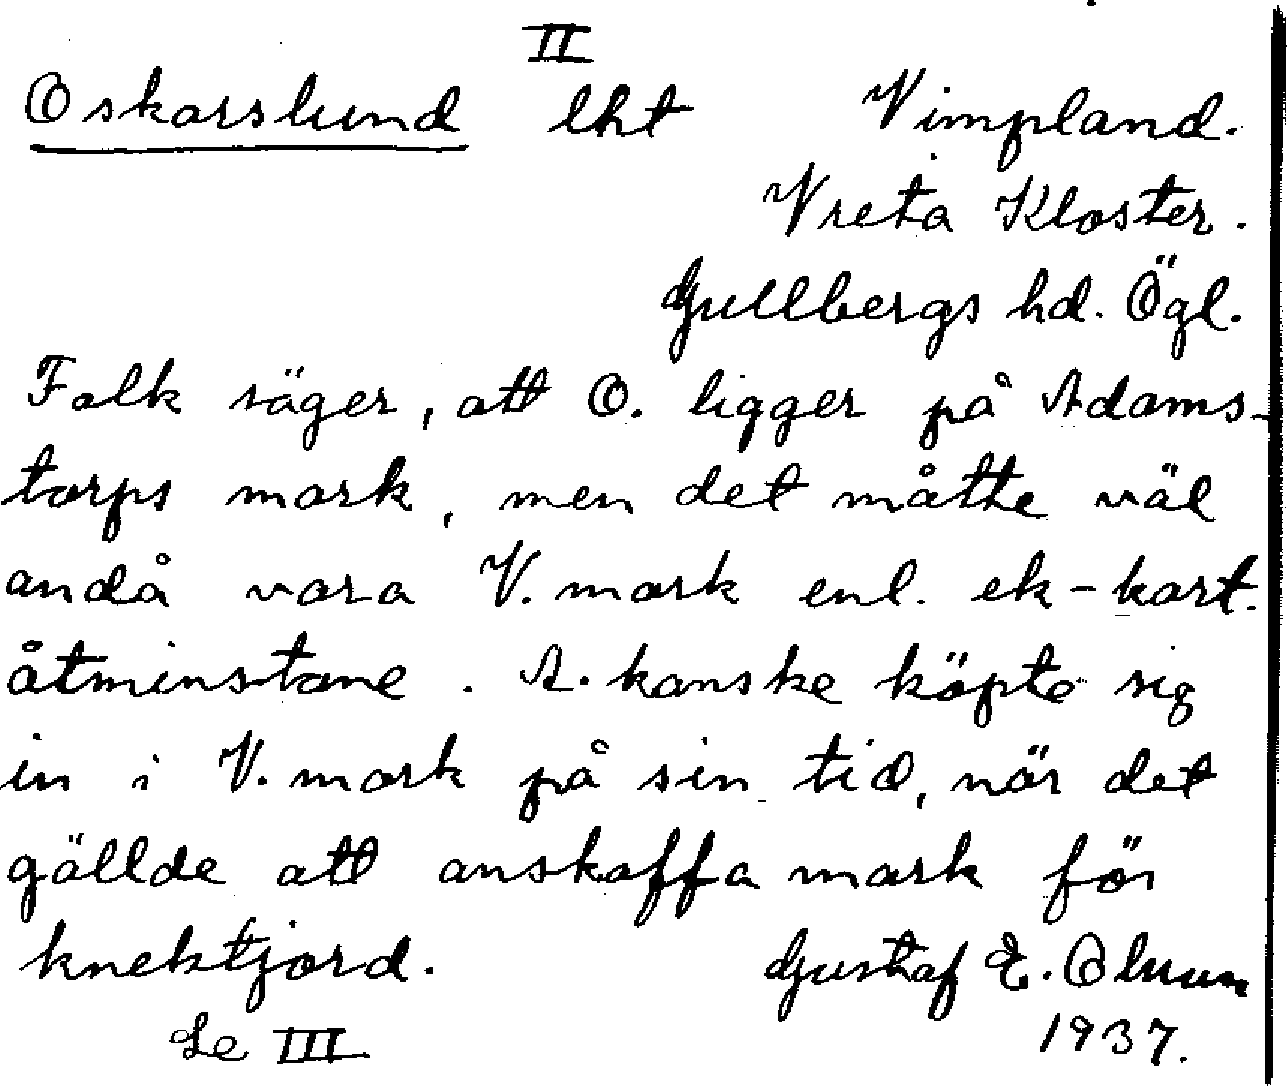 II
Oskarslund lht Vimpland.
Vreta Kloster.
Gullbergs hd. Ögl.
Folk säger, att O. ligger på Adams-
torps mark, men det måtte väl
andå vara V. mark enl. ek-kart.
åtminstone. A. kanske köpte sig
in i V. mark på sin tid, när det
gällde att anskaffa mark för
knektjord. Gustaf E. Olsson
Se III 1937.